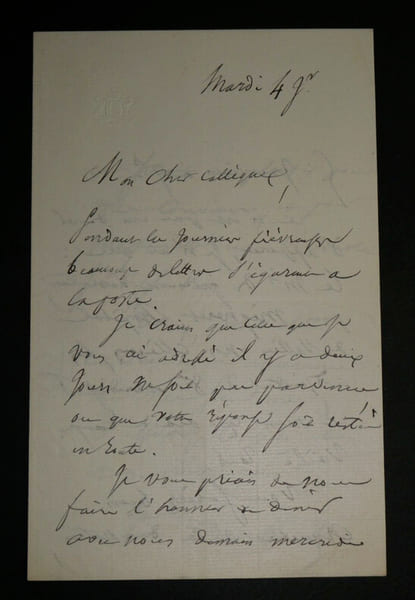 Mardi 4 Jr
Mon cher Collègue,
Pendant les journées fiévreuses
beaucoup de lettres s'égarent a
la poste.
Je crains que celle que je
vous ai adressé il y a deux
jours ne soit pas parvenue
ou que votre réponse soit restée
en route.
Je vous priais de nous
faire l'honneur de diner
avec nous demain mercredi